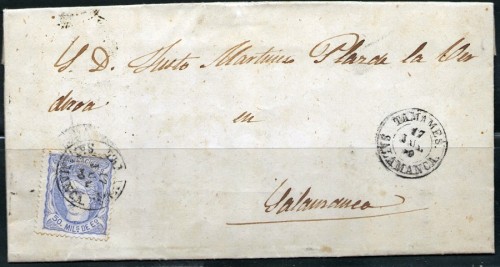 S. D. Justo Martin Plaza de la Ver
dura
en
Salamanca
TAMAMES.
17
JUL
SALAMANCA.
50 MILS DE ES